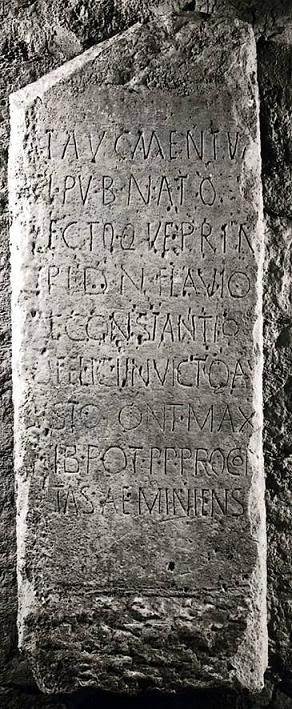 TAVGMENTV
I·PVB·NATO
ECTOQVEPRIN
PI·D·N·FLAVIO
CONSTANTIO
FELICI INVICTO A
STO ONT·MAX
IB·POT·PP·PROCO
TAS AEMINIENS